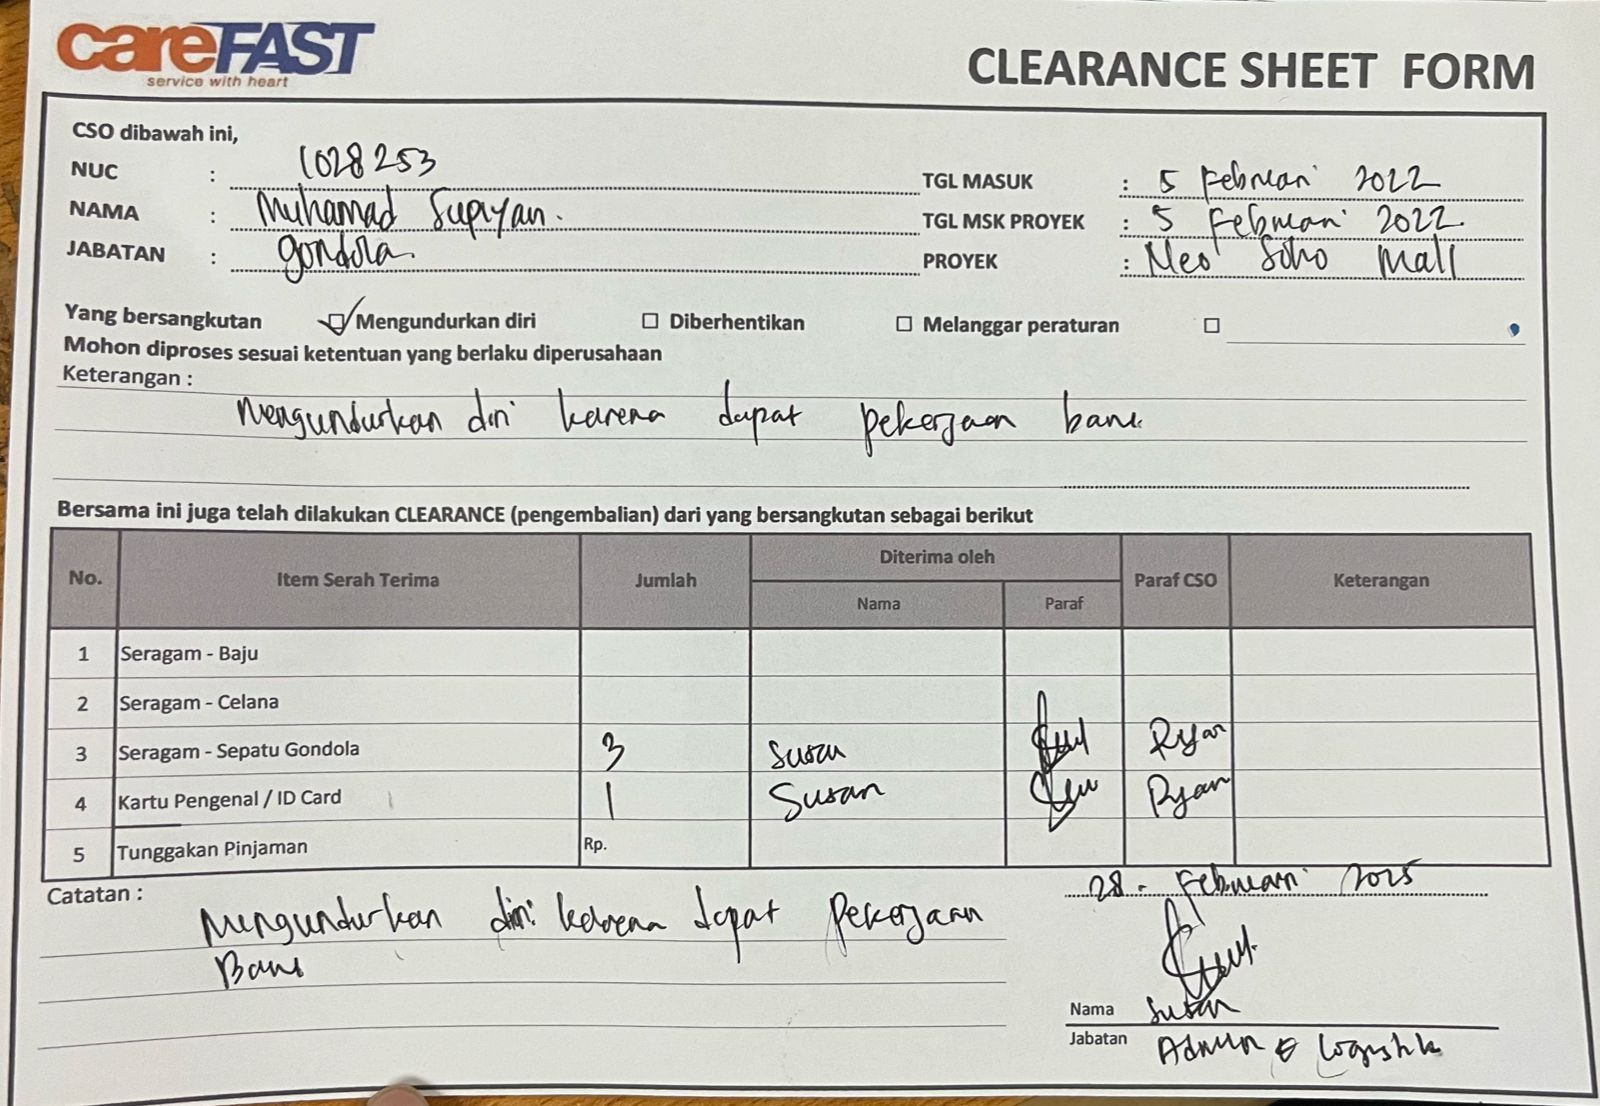 careFAST
service with heart
CLEARANCE SHEET FORM
CSO dibawah ini,
NUC : 1028253
TGL MASUK : 5 Februari 2022
NAMA : Muhamad Supiyan.
TGL MSK PROYEK : 5 Februari 2022
JABATAN : gondola.
PROYEK : Neo Soho Mall
Yang bersangkutan ☑ Mengundurkan diri ☐ Diberhentikan ☐ Melanggar peraturan ☐
Mohon diproses sesuai ketentuan yang berlaku diperusahaan
Keterangan :
Mengundurkan diri karena dapat pekerjaan baru.
Bersama ini juga telah dilakukan CLEARANCE (pengembalian) dari yang bersangkutan sebagai berikut
No. Item Serah Terima Jumlah Diterima oleh Paraf CSO Keterangan
Nama Paraf
1 Seragam - Baju
2 Seragam - Celana
3 Seragam - Sepatu Gondola 3 Susan Ryan
4 Kartu Pengenal / ID Card 1 Susan Ryan
5 Tunggakan Pinjaman Rp.
Catatan :
28 - Februari 2025
Mengundurkan diri karena dapat Pekerjaan
Baru
Nama Susan
Jabatan Admin & Logistik